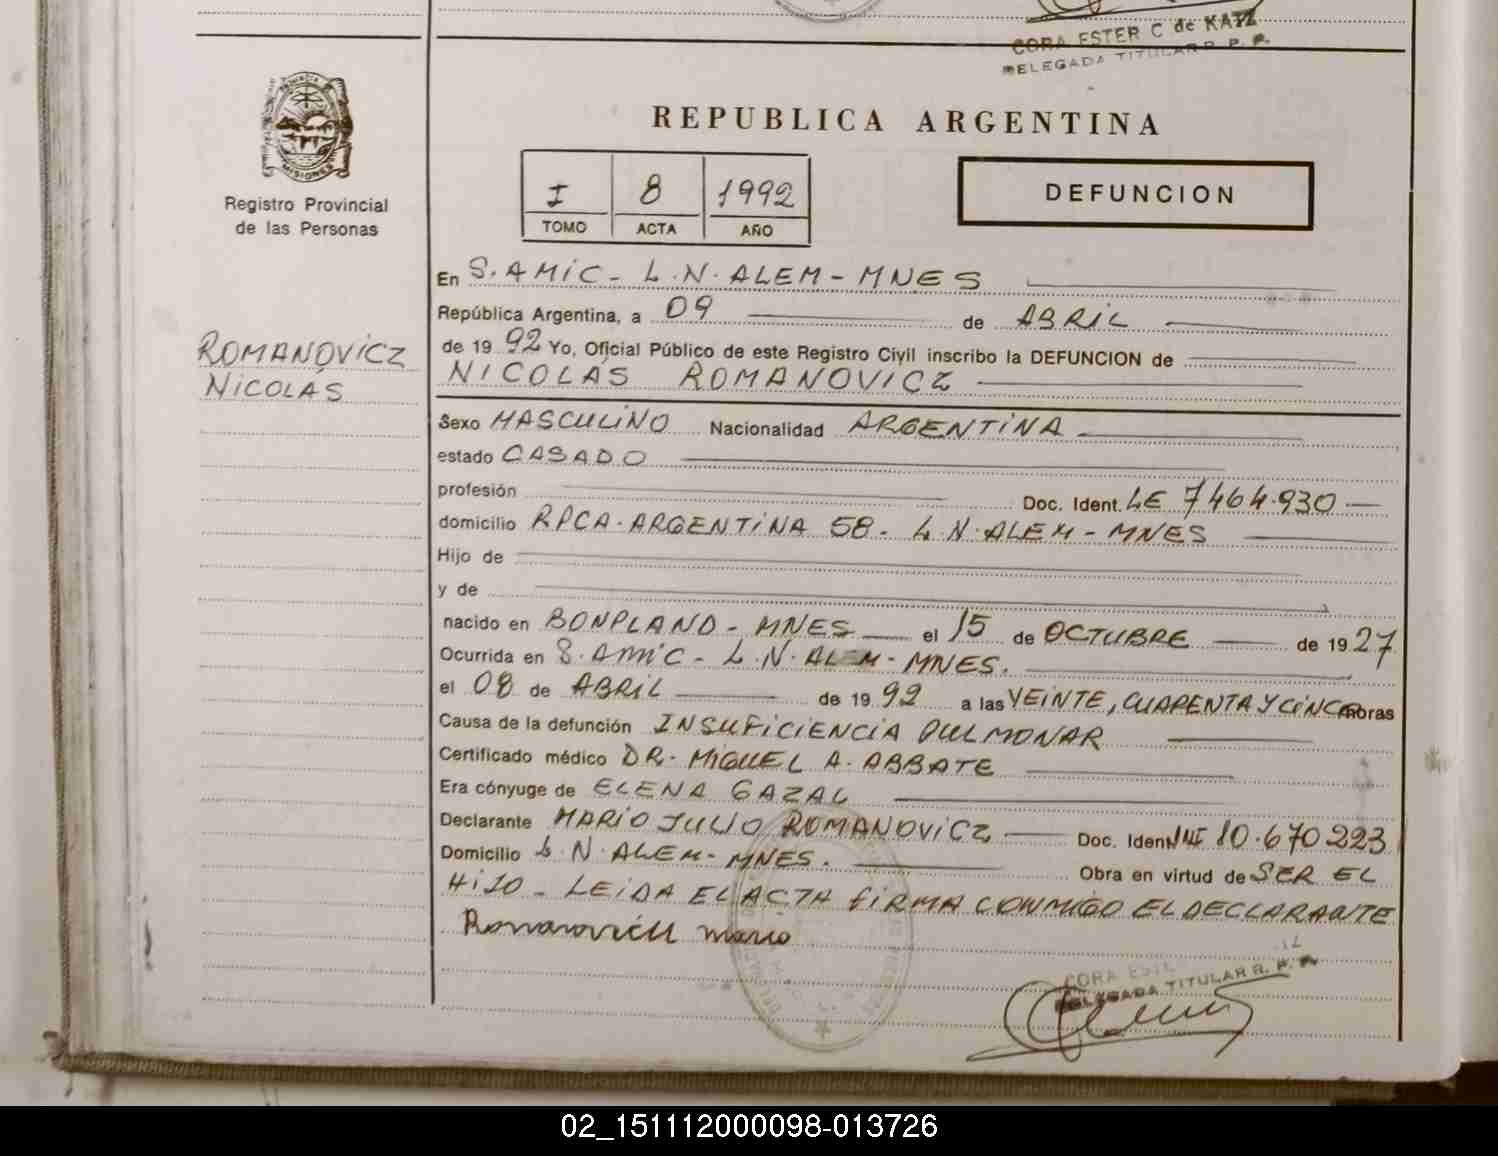 CORA ESTER C de KATZ
DELEGADA TITULAR R. P. P.
MISIONES
Registro Provincial
de las Personas
ROMANOVICZ
NICOLÁS
REPUBLICA ARGENTINA
I 8 1992
TOMO ACTA AÑO
DEFUNCION
En S. AMIC - L.N. ALEM - MNES
República Argentina, a 09 de ABRIL
de 1992 Yo, Oficial Público de este Registro Civil inscribo la DEFUNCION de
NICOLÁS ROMANOVICZ
Sexo MASCULINO Nacionalidad ARGENTINA
estado CASADO
profesión Doc. Ident. LE 7464.930
domicilio RPCA. ARGENTINA 58 - L.N. ALEM - MNES
Hijo de
y de
nacido en BONPLAND - MNES el 15 de OCTUBRE de 1927
Ocurrida en S. AMIC - L.N. ALEM - MNES.
el 08 de ABRIL de 1992 a las VEINTE, CUARENTA Y CINCO horas
Causa de la defunción INSUFICIENCIA PULMONAR
Certificado médico DR. MIGUEL A. ABBATE
Era cónyuge de ELENA GAZAL
Declarante MARIO JULIO ROMANOVICZ Doc. Ident. DNI 10.670.223
Domicilio L.N. ALEM - MNES. Obra en virtud de SER EL
HIJO - LEIDA EL ACTA FIRMA CONMIGO EL DECLARANTE
Romanovicz mario
CORA ESTE
DELEGADA TITULAR R. P. P.
02_151112000098-013726